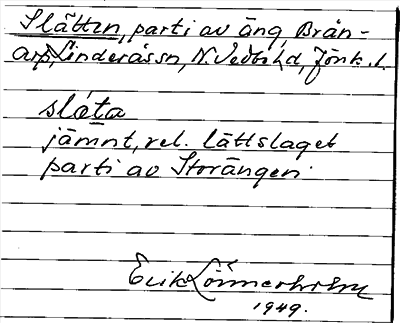 Slätten, parti av äng, Brån-
arp, Linderås sn, N. Vedbo hd, Jönk. l.
slǝ́ta
jämnt, rel. lättslaget
parti av Storängen.
Erik Lönnerholm
1949.